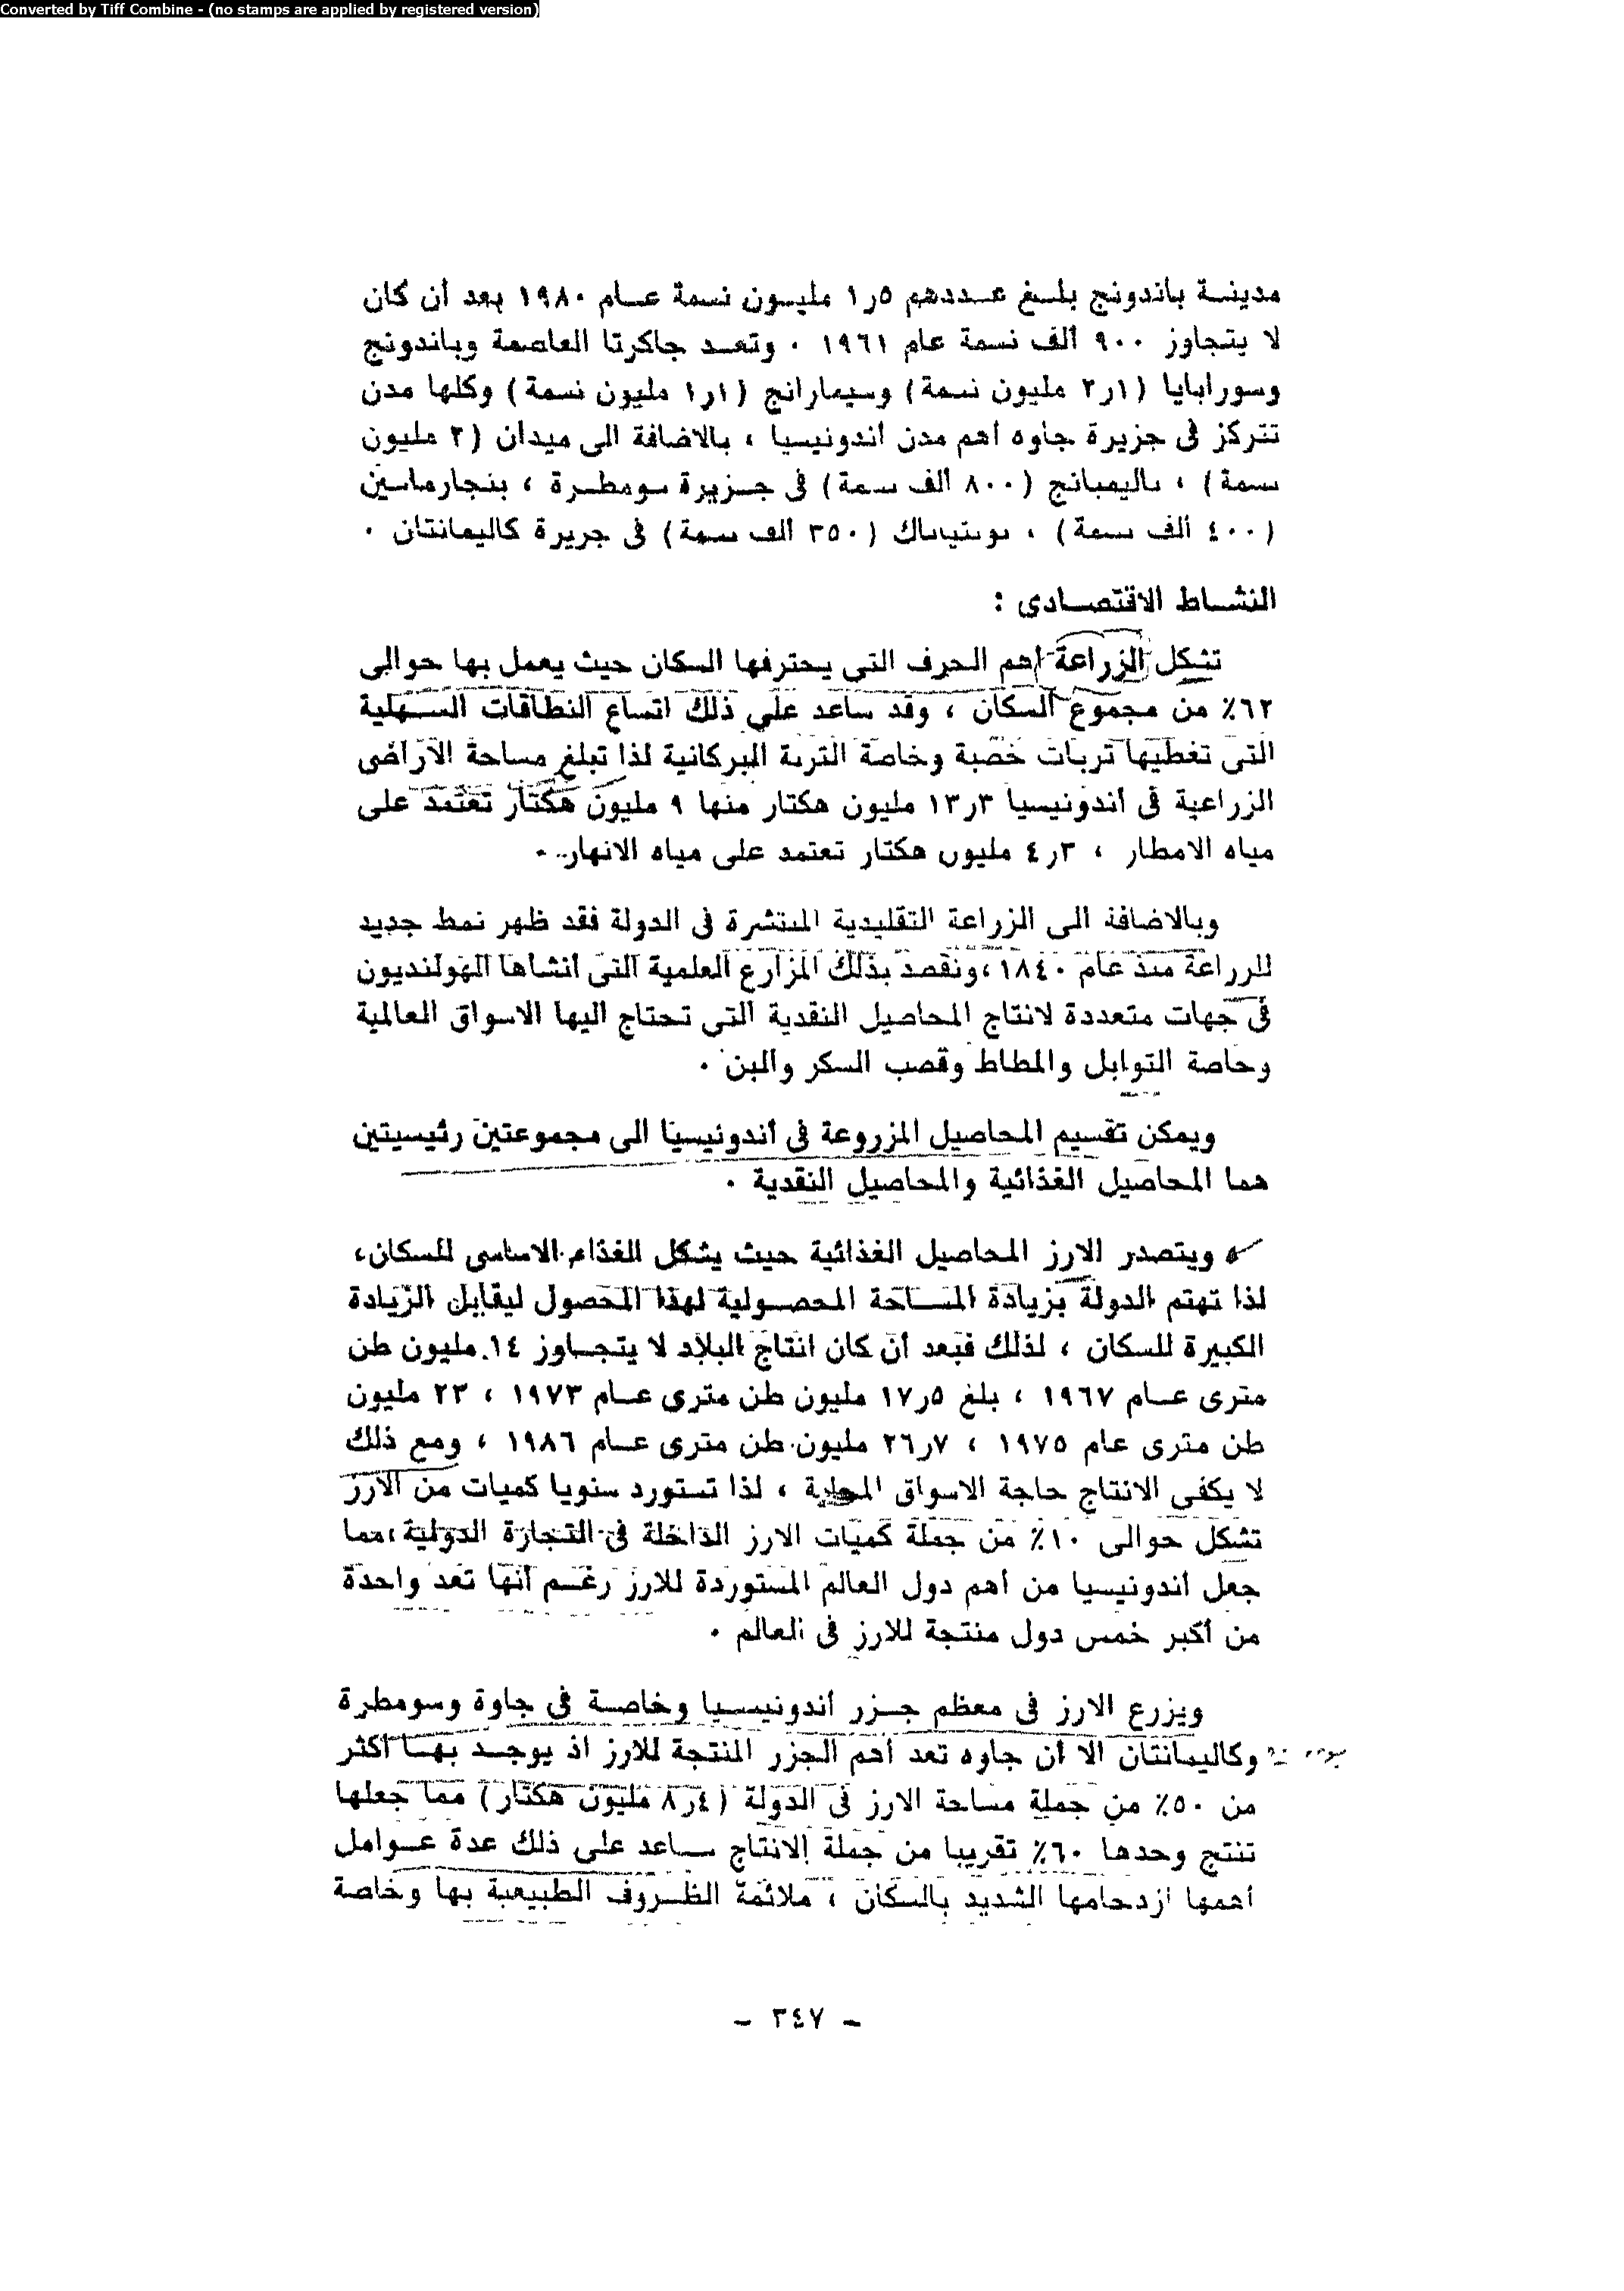 Converted by Tiff Combine - (no stamps are applied by registered version)
مدينــة باندونج بلــغ عــددهم ٥ر١ مليــون نسمة عــام ١٩٨٠ بعد أن كان
لا يتجاوز ٩٠٠ ألف نسمة عام ١٩٦١ ٠ وتعــد جاكرتا العاصمة وباندونج
وسورابايا (١ر٢ مليون نسمة) وسيمارانج (١ر١ مليون نسمة) وكلها مدن
تتركز فى جزيرة جاوه أهم مدن أندونيسيا ، بالاضافة الى ميدان (٢ مليون
نسمة) ، باليمبانج (٨٠٠ ألف نسمة) فى جــزيرة سومطــرة ، بنجارماسين
(٤٠٠ ألف نسمة) ، بونتياناك (٣٥٠ ألف نسمة) فى جزيرة كاليمانتان ٠
النشــاط الاقتصــادى :
تشكل الزراعة أهم الحرف التى يحترفها السكان حيث يعمل بها حوالى
٦٢٪ من مجموع السكان ، وقد ساعد على ذلك اتساع النطاقات الســهلية
التى تغطيها تربات خصبة وخاصة التربة البركانية لذا تبلغ مساحة الاراضى
الزراعية فى أندونيسيا ٣ر١٣ مليون هكتار منها ٩ مليون هكتار تعتمد على
مياه الامطار ، ٣ر٤ مليون هكتار تعتمد على مياه الانهار ٠
وبالاضافة الى الزراعة التقليدية المنتشرة فى الدولة فقد ظهر نمط جديد
للزراعة منذ عام ١٨٤٠ ،ونقصد بذلك المزارع العلمية التى أنشأها الهولنديون
فى جهات متعددة لانتاج المحاصيل النقدية التى تحتاج اليها الاسواق العالمية
وخاصة التوابل والمطاط وقصب السكر والبن ٠
ويمكن تقسيم المحاصيل المزروعة فى أندونيسيا الى مجموعتين رئيسيتين
هما المحاصيل الغذائية والمحاصيل النقدية ٠
ويتصدر الارز المحاصيل الغذائية حيث يشكل الغذاء الاساسى للسكان،
لذا تهتم الدولة بزيادة المســاحة المحصــولية لهذا المحصول ليقابل الزيادة
الكبيرة للسكان ، لذلك فبعد أن كان انتاج البلاد لا يتجــاوز ١٤ مليون طن
مترى عــام ١٩٦٧ ، بلغ ٥ر١٧ مليون طن مترى عــام ١٩٧٣ ، ٢٣ مليون
طن مترى عام ١٩٧٥ ، ٧ر٢٦ مليون طن مترى عــام ١٩٨٦ ، ومع ذلك
لا يكفى الانتاج حاجة الاسواق المحلية ، لذا تستورد سنويا كميات من الارز
تشكل حوالى ١٠٪ من جملة كميات الارز الداخلة فى التجارة الدولية ،مما
جعل أندونيسيا من أهم دول العالم المستوردة للارز رغــم أنها تعد واحدة
من أكبر خمس دول منتجة للارز فى العالم ٠
ويزرع الارز فى معظم جــزر أندونيســيا وخاصــة فى جاوة وسومطرة
وكاليمانتان الا أن جاوه تعد أهم الجزر المنتجة للارز اذ يوجــد بهــا أكثر
من ٥٠٪ من جملة مساحة الارز فى الدولة (٤ر٨ مليون هكتار) مما جعلها
تنتج وحدها ٦٠٪ تقريبا من جملة الانتاج ســاعد على ذلك عدة عــوامل
أهمها ازدحامها الشديد بالسكان ، ملائمة الظــروف الطبيعية بها وخاصة
– ٣٤٧ –